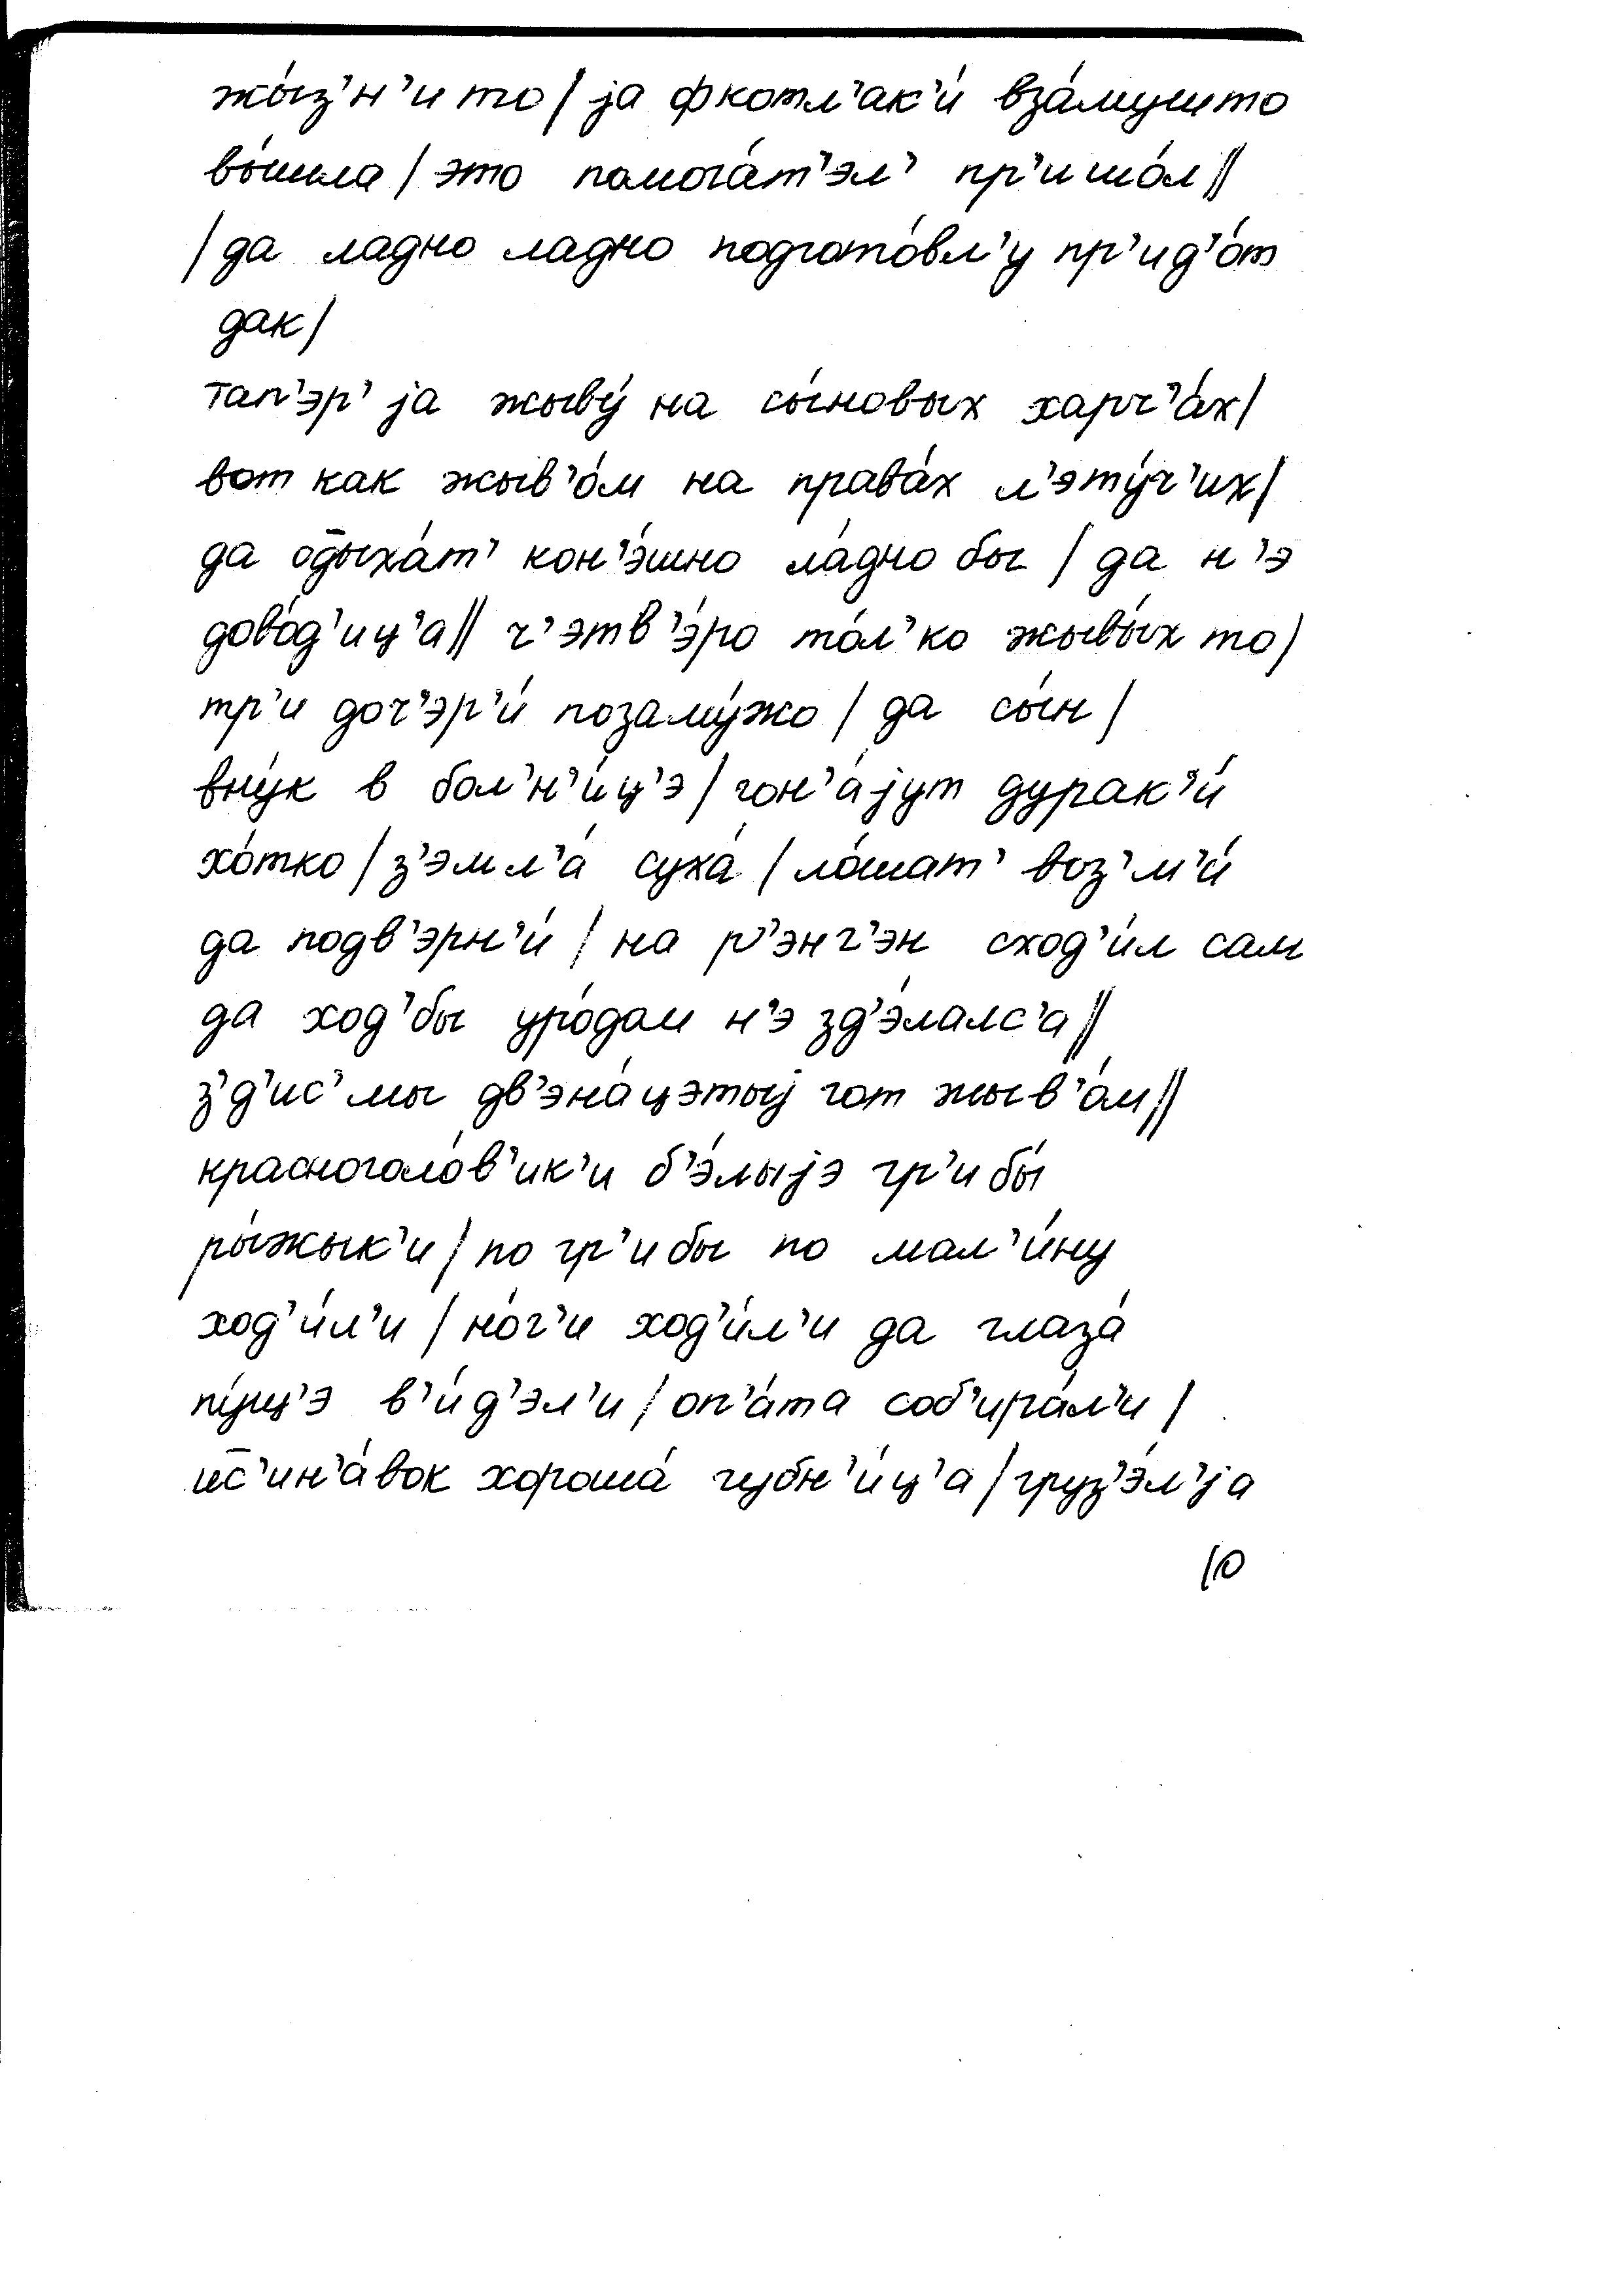 жы́з’н’и то / jа фкотл’ак’и́ вза́мушто
вы́шла / это помога́т’эл’ пр’ишо́л //
/ да ладно ладно подгото́вл’у пр’ид’о́т
дак /
тап’эр’ jа жыву́ на сы́новых харч’а́х /
вот как жыв’о́м на права́х л’эту́ч’их /
да од̅ыха́т’ кон’э́шно ла́дно бы / да н’э
дово́д’иц’а // ч’этв’э́ро то́л’ко жывы́х то /
тр’и доч’эр’и́ позаму́жо / да сы́н /
вну́к в бол’н’и́ц’э / гон’а́jут дурак’и́
хо́тко / з’эмл’а́ суха́ / ло́шат’ воз’м’и́
да подв’эрн’и́ / на р’энг’эн сход’и́л сам
да ход’бы уро́дом н’э зд’э́лалс’а //
з’д’ис’ мы дв’эна́цэтыj гот жыв’о́м //
красноголо́в’ик’и б’э́лыjэ гр’ибы́
ры́жык’и / по гр’ибы по мал’и́ну
ход’и́л’и / но́г’и ход’и́л’и да глаза́
пу́щ’э в’и́д’эл’и / оп’а́та соб’ира́л’и /
ис̅’ин’а́вок хороша́ губн’и́ц’а / груз’э́л’jа
10